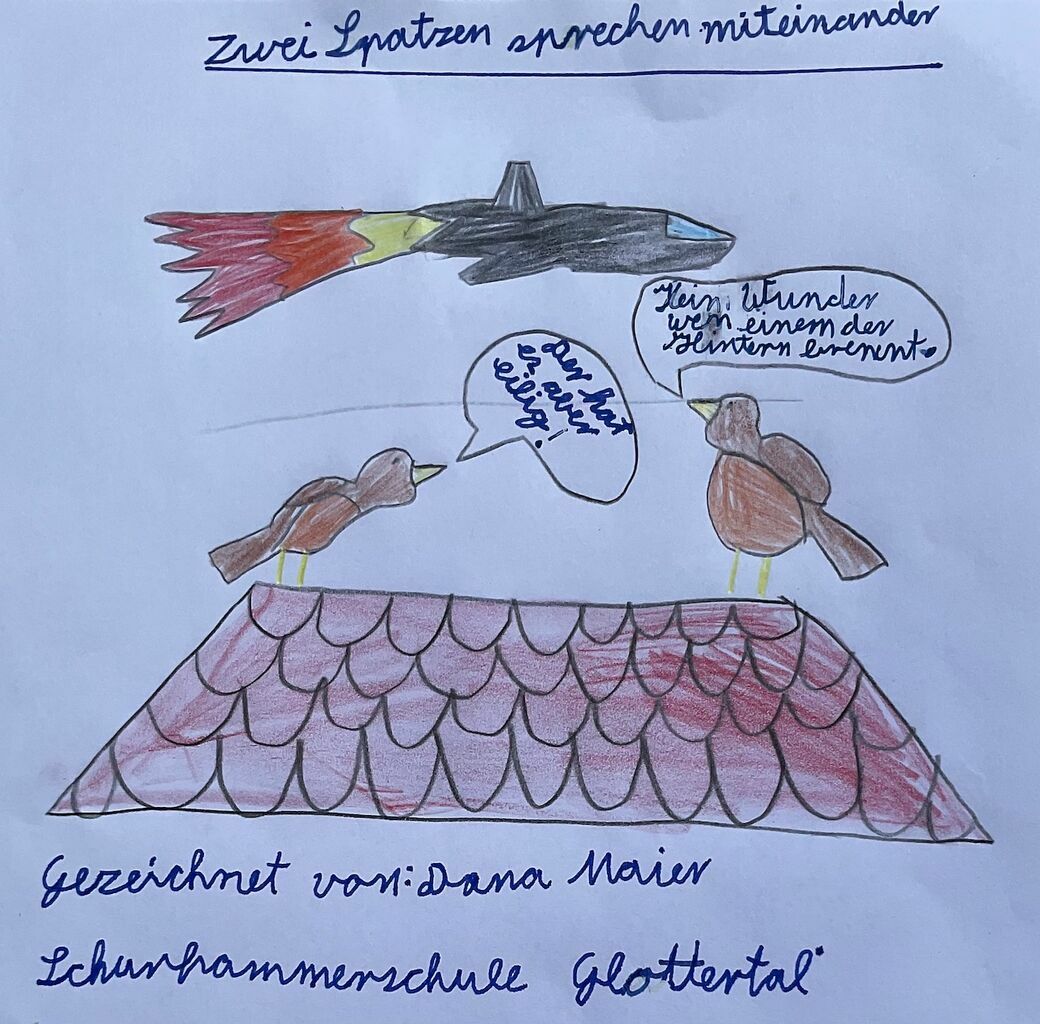 Zwei Spatzen sprechen miteinander
Der hat
es aber
eilig!
Kein Wunder
wen einem der
Hintern brennt.
Gezeichnet von: Dana Maier
Schurhammerschule Glottertal